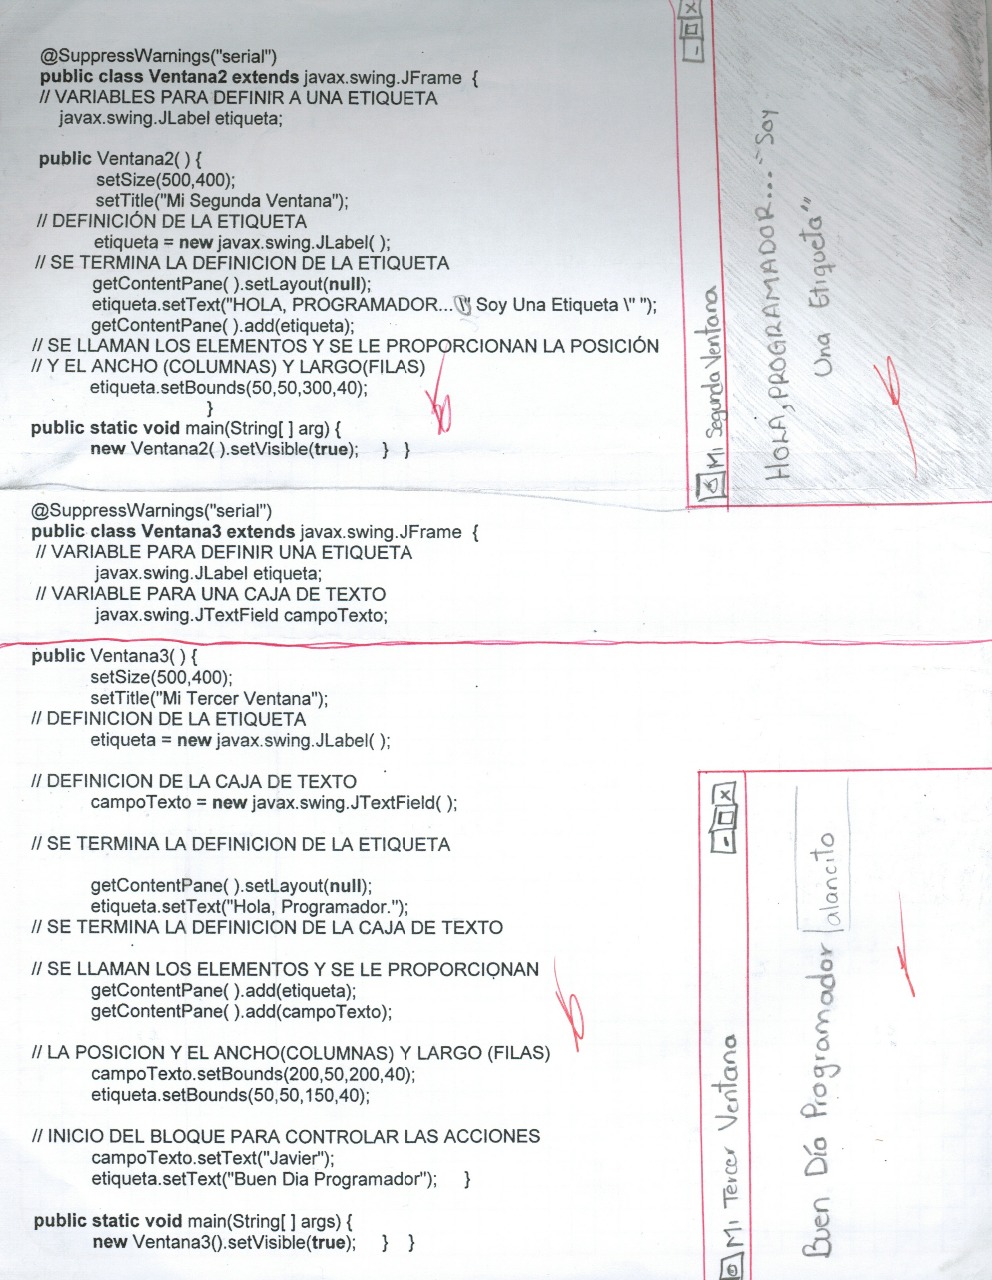 @SuppressWarnings("serial")
public class Ventana2 extends javax.swing.JFrame {
// VARIABLES PARA DEFINIR A UNA ETIQUETA
javax.swing.JLabel etiqueta;
public Ventana2( ) {
setSize(500,400);
setTitle("Mi Segunda Ventana");
// DEFINICIÓN DE LA ETIQUETA
etiqueta = new javax.swing.JLabel( );
// SE TERMINA LA DEFINICION DE LA ETIQUETA
getContentPane( ).setLayout(null);
etiqueta.setText("HOLA, PROGRAMADOR...\" Soy Una Etiqueta \" ");
getContentPane( ).add(etiqueta);
// SE LLAMAN LOS ELEMENTOS Y SE LE PROPORCIONAN LA POSICIÓN
// Y EL ANCHO (COLUMNAS) Y LARGO(FILAS)
etiqueta.setBounds(50,50,300,40);
}
public static void main(String[ ] arg) {
new Ventana2( ).setVisible(true); } }
Mi Segunda Ventana - □ X
HOLA, PROGRAMADOR..." Soy
Una Etiqueta"
@SuppressWarnings("serial")
public class Ventana3 extends javax.swing.JFrame {
// VARIABLE PARA DEFINIR UNA ETIQUETA
javax.swing.JLabel etiqueta;
// VARIABLE PARA UNA CAJA DE TEXTO
javax.swing.JTextField campoTexto;
public Ventana3( ) {
setSize(500,400);
setTitle("Mi Tercer Ventana");
// DEFINICION DE LA ETIQUETA
etiqueta = new javax.swing.JLabel( );
// DEFINICION DE LA CAJA DE TEXTO
campoTexto = new javax.swing.JTextField( );
// SE TERMINA LA DEFINICION DE LA ETIQUETA
getContentPane( ).setLayout(null);
etiqueta.setText("Hola, Programador.");
// SE TERMINA LA DEFINICION DE LA CAJA DE TEXTO
// SE LLAMAN LOS ELEMENTOS Y SE LE PROPORCIONAN
getContentPane( ).add(etiqueta);
getContentPane( ).add(campoTexto);
// LA POSICION Y EL ANCHO(COLUMNAS) Y LARGO (FILAS)
campoTexto.setBounds(200,50,200,40);
etiqueta.setBounds(50,50,150,40);
// INICIO DEL BLOQUE PARA CONTROLAR LAS ACCIONES
campoTexto.setText("Javier");
etiqueta.setText("Buen Dia Programador"); }
public static void main(String[ ] args) {
new Ventana3().setVisible(true); } }
Mi Tercer Ventana - □ X
Buen Día Programador alancito